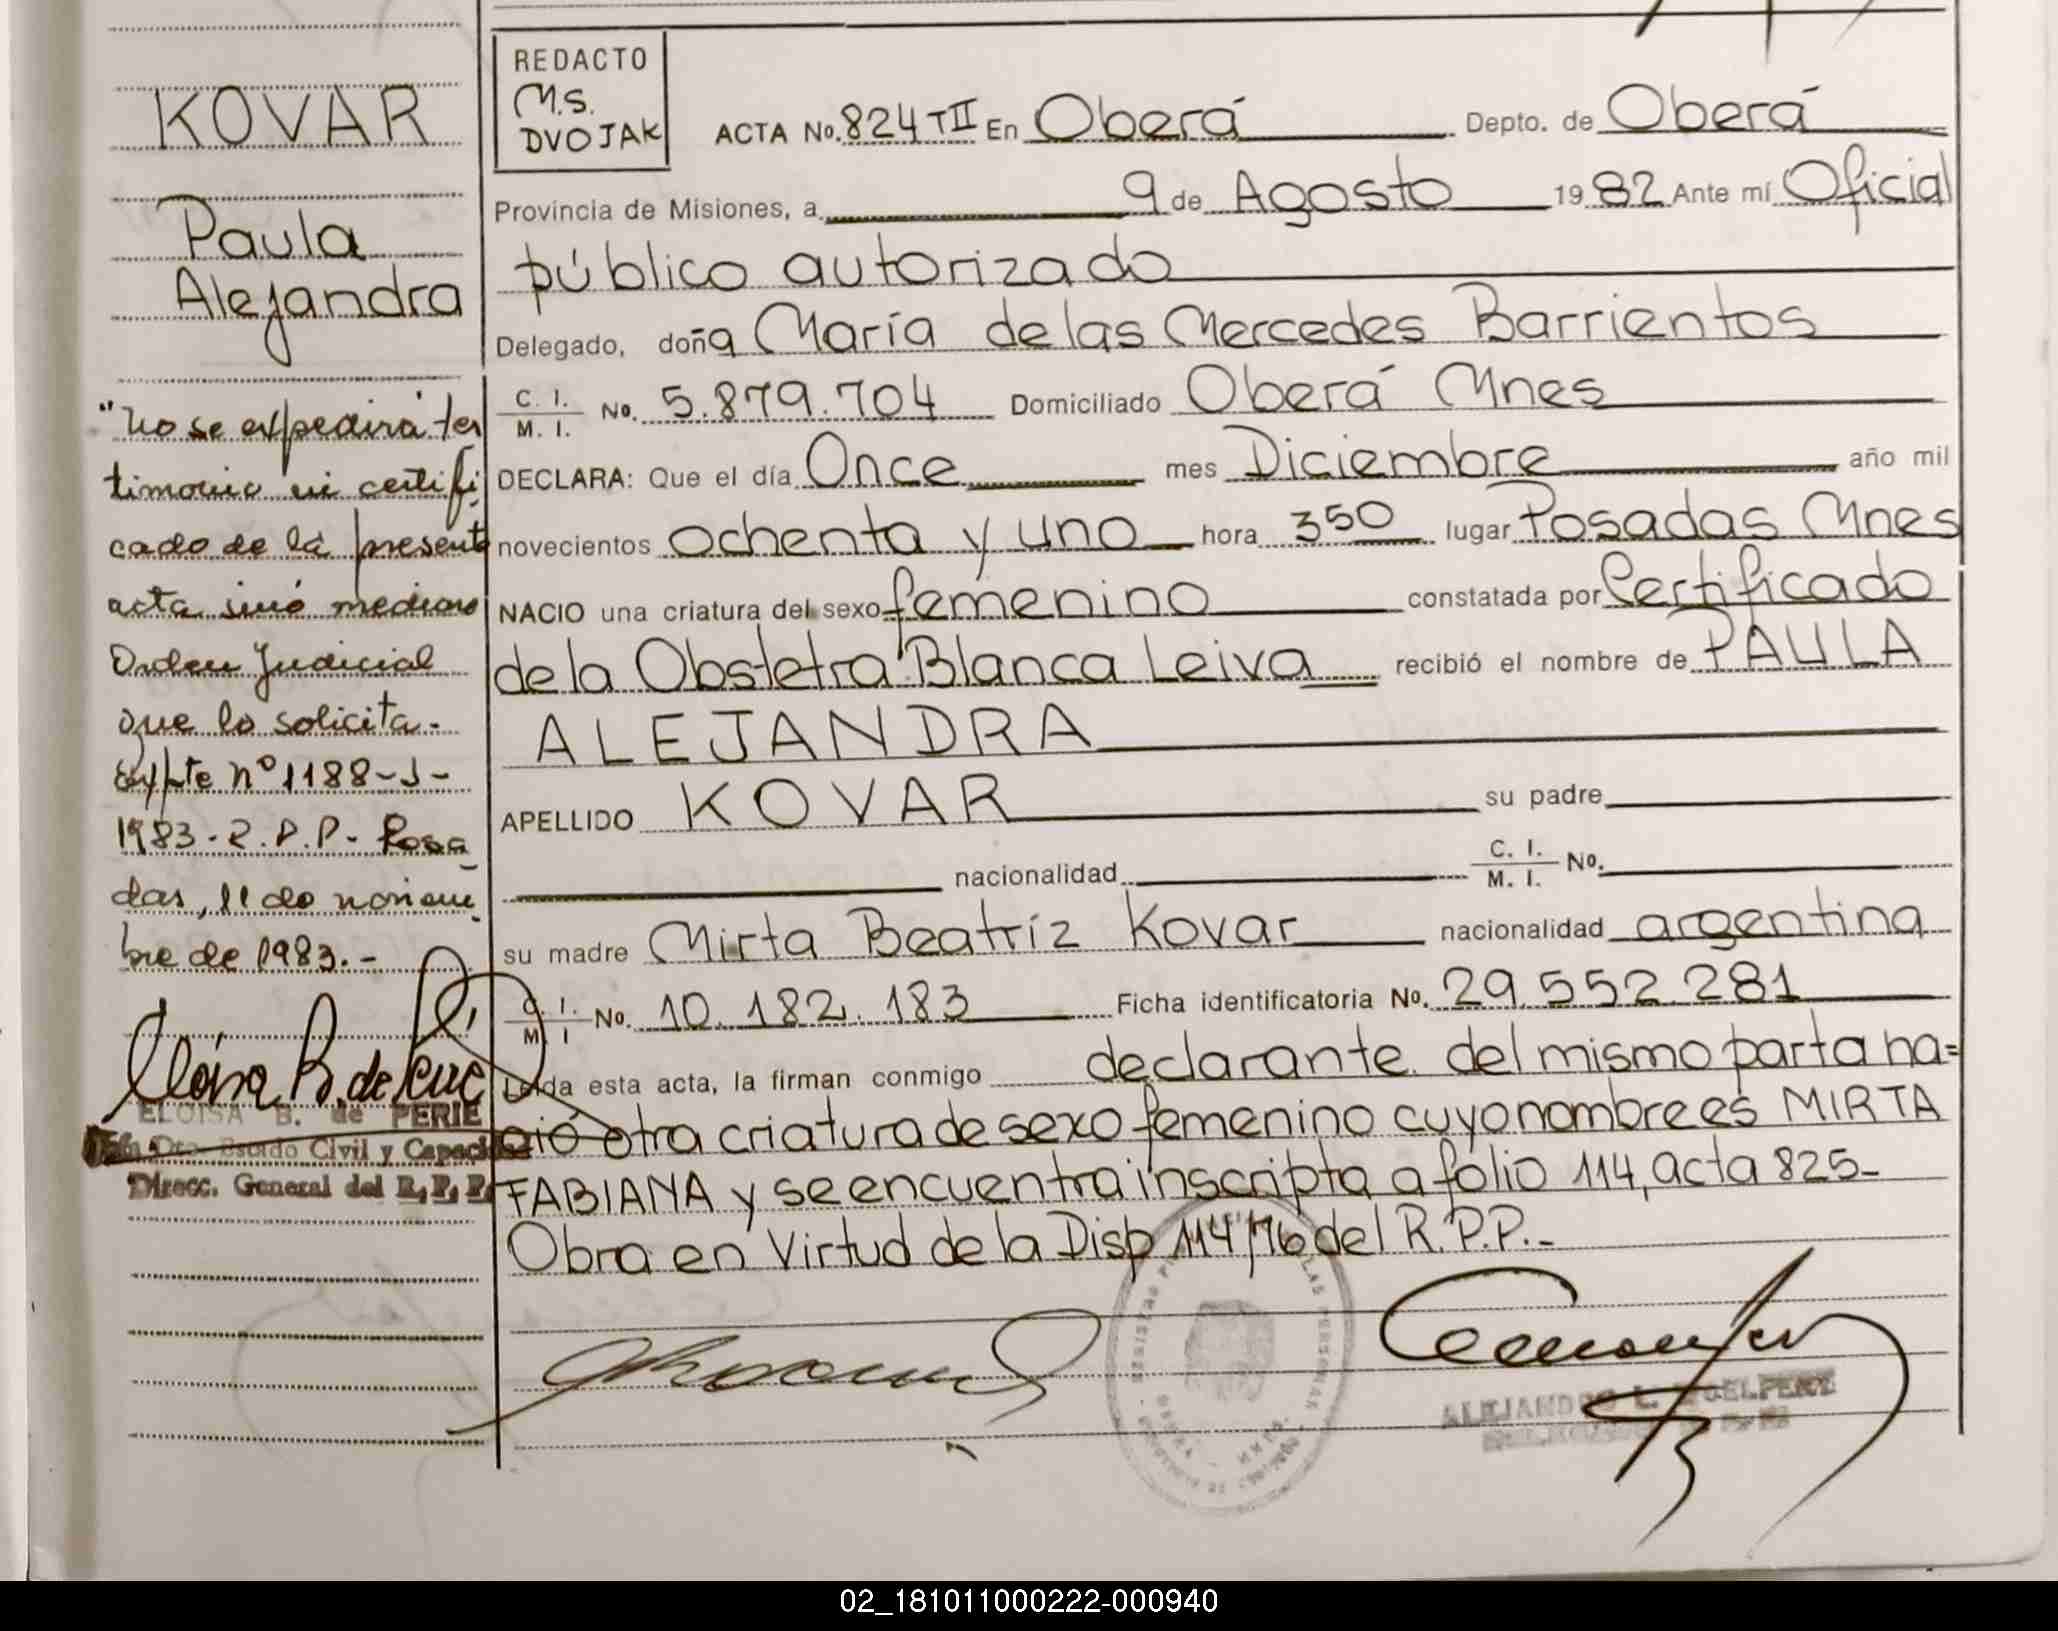 KOVAR
Paula
Alejandra
"No se expedirá tes
timonio ni certifi
cado de la present
acta sinó mediante
Orden Judicial
que lo solicita.-
Expte nº 1188-J-
1983-R.P.P.- Posa
das, 11 de noviem
bre de 1983.-
ELOISA B. de PERIE
Estado Civil y Capacidad
Direcc. General del R.P.P.
REDACTO
M.S.
DVOJAK
ACTA No. 824 TII En Oberá Depto. de Oberá
Provincia de Misiones, a 9 de Agosto 1982 Ante mí Oficial
público autorizado
Delegado, doña María de las Mercedes Barrientos
C. I.
M. I. No. 5.879.704 Domiciliado Oberá Mnes
DECLARA: Que el día Once mes Diciembre año mil
novecientos ochenta y uno hora 3 50 lugar Posadas Mnes
NACIO una criatura del sexo femenino constatada por Certificado
de la Obstetra Blanca Leiva recibió el nombre de PAULA
ALEJANDRA
APELLIDO KOVAR su padre
nacionalidad C. I.
M. I. No.
su madre Mirta Beatríz Kovar nacionalidad argentina
C. I.
M. I No. 10.182.183 Ficha identificatoria No. 29.552.281
Leída esta acta, la firman conmigo declarante. del mismo parto na=
ció otra criatura de sexo femenino cuyo nombre es MIRTA
FABIANA y se encuentra inscripta a folio 114, acta 825-
Obra en Virtud de la Disp 114/76 del R.P.P.-
02_181011000222-000940